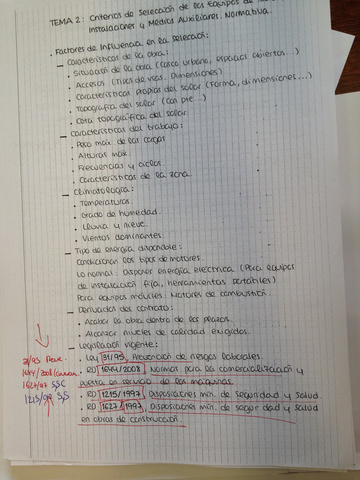 TEMA 2: Criterios de Selección de los Equipos de
Instalaciones y Medios Auxiliares. Normativa.
. Factores de Influencia en la selección:
— Características de la obra:
. Situación de la obra (casco urbano, espacios abiertos...)
. Accesos (Tipos de vías. Dimensiones)
. Características propias del solar (Forma, dimensiones...)
. Topografía del solar (con pte...)
. Cota topográfica del solar
— Características del trabajo:
. Peso max. de las cargas
. Alturas max.
. Frecuencias y ciclos.
. Características de la zona.
— Climatología:
. Temperaturas.
. Grado de humedad.
. Lluvia y nieve.
. Vientos dominantes.
— Tipo de energía disponible:
Condicionan los tipos de motores.
Lo normal: disponer energía eléctrica (Para equipos
de instalación fija, herramientas portátiles)
Para equipos móviles: Motores de combustión.
— Derivados del contrato:
. Acabar la obra dentro de los plazos.
. Alcanzar niveles de calidad exigidos.
— Legislación vigente:
. Ley 31/95, Prevención de riesgos laborales.
. RD 1644/2008: Normas para la comercialización y
puesta en servicio de las máquinas.
. RD 1215/1997, Disposiciones mín. de seguridad y salud.
. RD 1627/1997, Disposiciones mín. de seguridad y salud
en obras de construcción.
31/95 Preve.
1644/2008
1627/97 SSC
1215/97 S/S